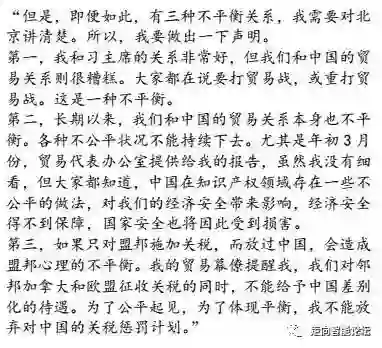 “但是，即便如此，有三种不平衡关系，我需要对北
京讲清楚。所以，我要做出一下声明。
第一，我和习主席的关系非常好，但我们和中国的贸
易关系则很糟糕。大家都在说要打贸易战，或重打贸
易战。这是一种不平衡。
第二，长期以来，我们和中国的贸易关系本身也不平
衡。各种不公平状况不能持续下去。尤其是年初3月
份，贸易代表办公室提供给我的报告，虽然我没有细
看，但大家都知道，中国在知识产权领域存在一些不
公平的做法，对我们的经济安全带来影响，经济安全
得不到保障，国家安全也将因此受到损害。
第三，如果只对盟邦施加关税，而放过中国，会造成
盟邦心理的不平衡。我的贸易幕僚提醒我，我们对邻
邦加拿大和欧盟征收关税的同时，不能给予中国差别
化的待遇。为了公平起见，为了体现平衡，我不能放
弃对中国的关税惩罚计划。”
走向智能论坛